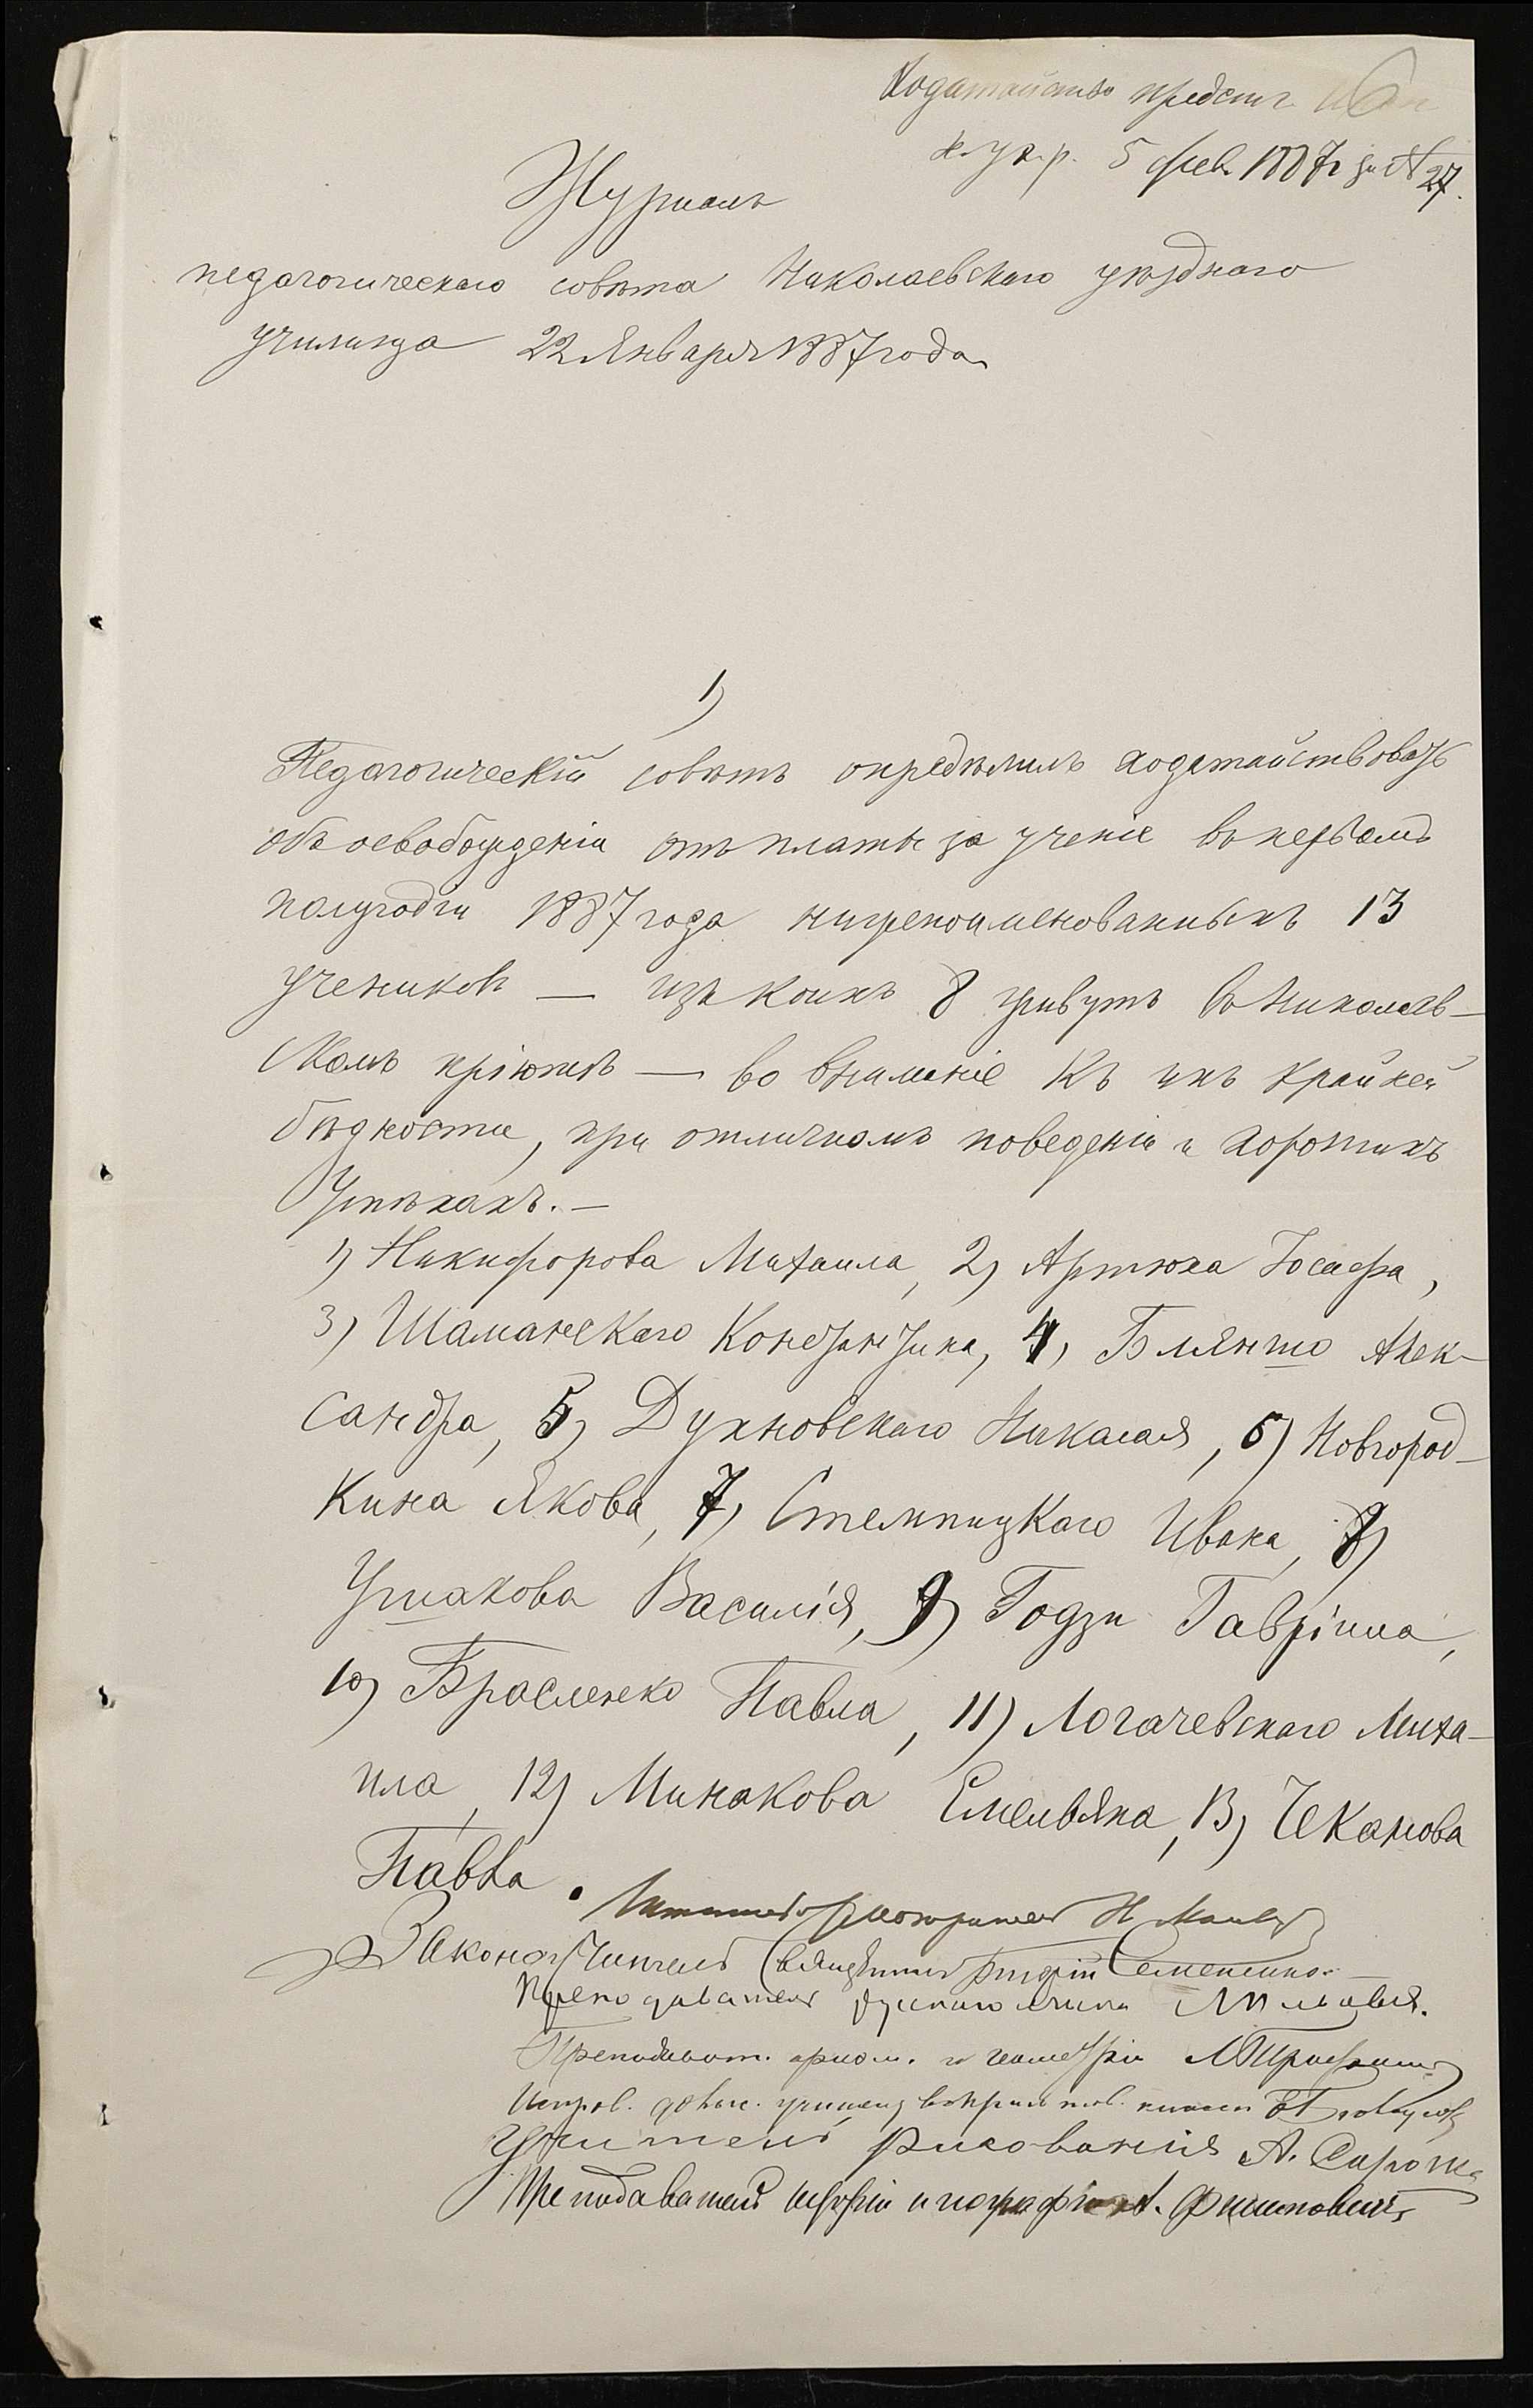 Ходатайство предст.
5 фев. 1887 г за № 27.
Журналъ
педагогическаго совѣта Николаевскаго уѣзднаго
училища 22 Января 1887 года
1)
Педагогическій совѣтъ опредѣлилъ ходатайствовать
объ освобожденіи отъ платы за ученіе въ первомъ
полугодіи 1887 года нижепоименованныхъ 13
учениковъ — изъ коихъ 8 живутъ въ Николаев-
скомъ пріютѣ — во вниманіе къ ихъ крайней
бѣдности, при отличномъ поведеніи и хорошихъ
успѣхахъ. —
1) Никифорова Михаила, 2) Артюха Іосафа,
3) Шаманскаго Константина, 4) Бляншо Алек-
сандра, 5) Духновскаго Николая, 6) Новгород-
кина Якова, 7) Стемпицкаго Ивана, 8)
Ушакова Василія, 9) Годзи Гавріила,
10) Брасленко Павла, 11) Логачевскаго Миха-
ила, 12) Минакова Емельяна, 13) Чеканова
Павла.
Штатный смотритель Н.
Законоучитель Священникъ
Преподаватель русскаго языка
Преподават. ариөм. и геометріи
Учитель рисованія А.
Преподаватель исторіи и географіи